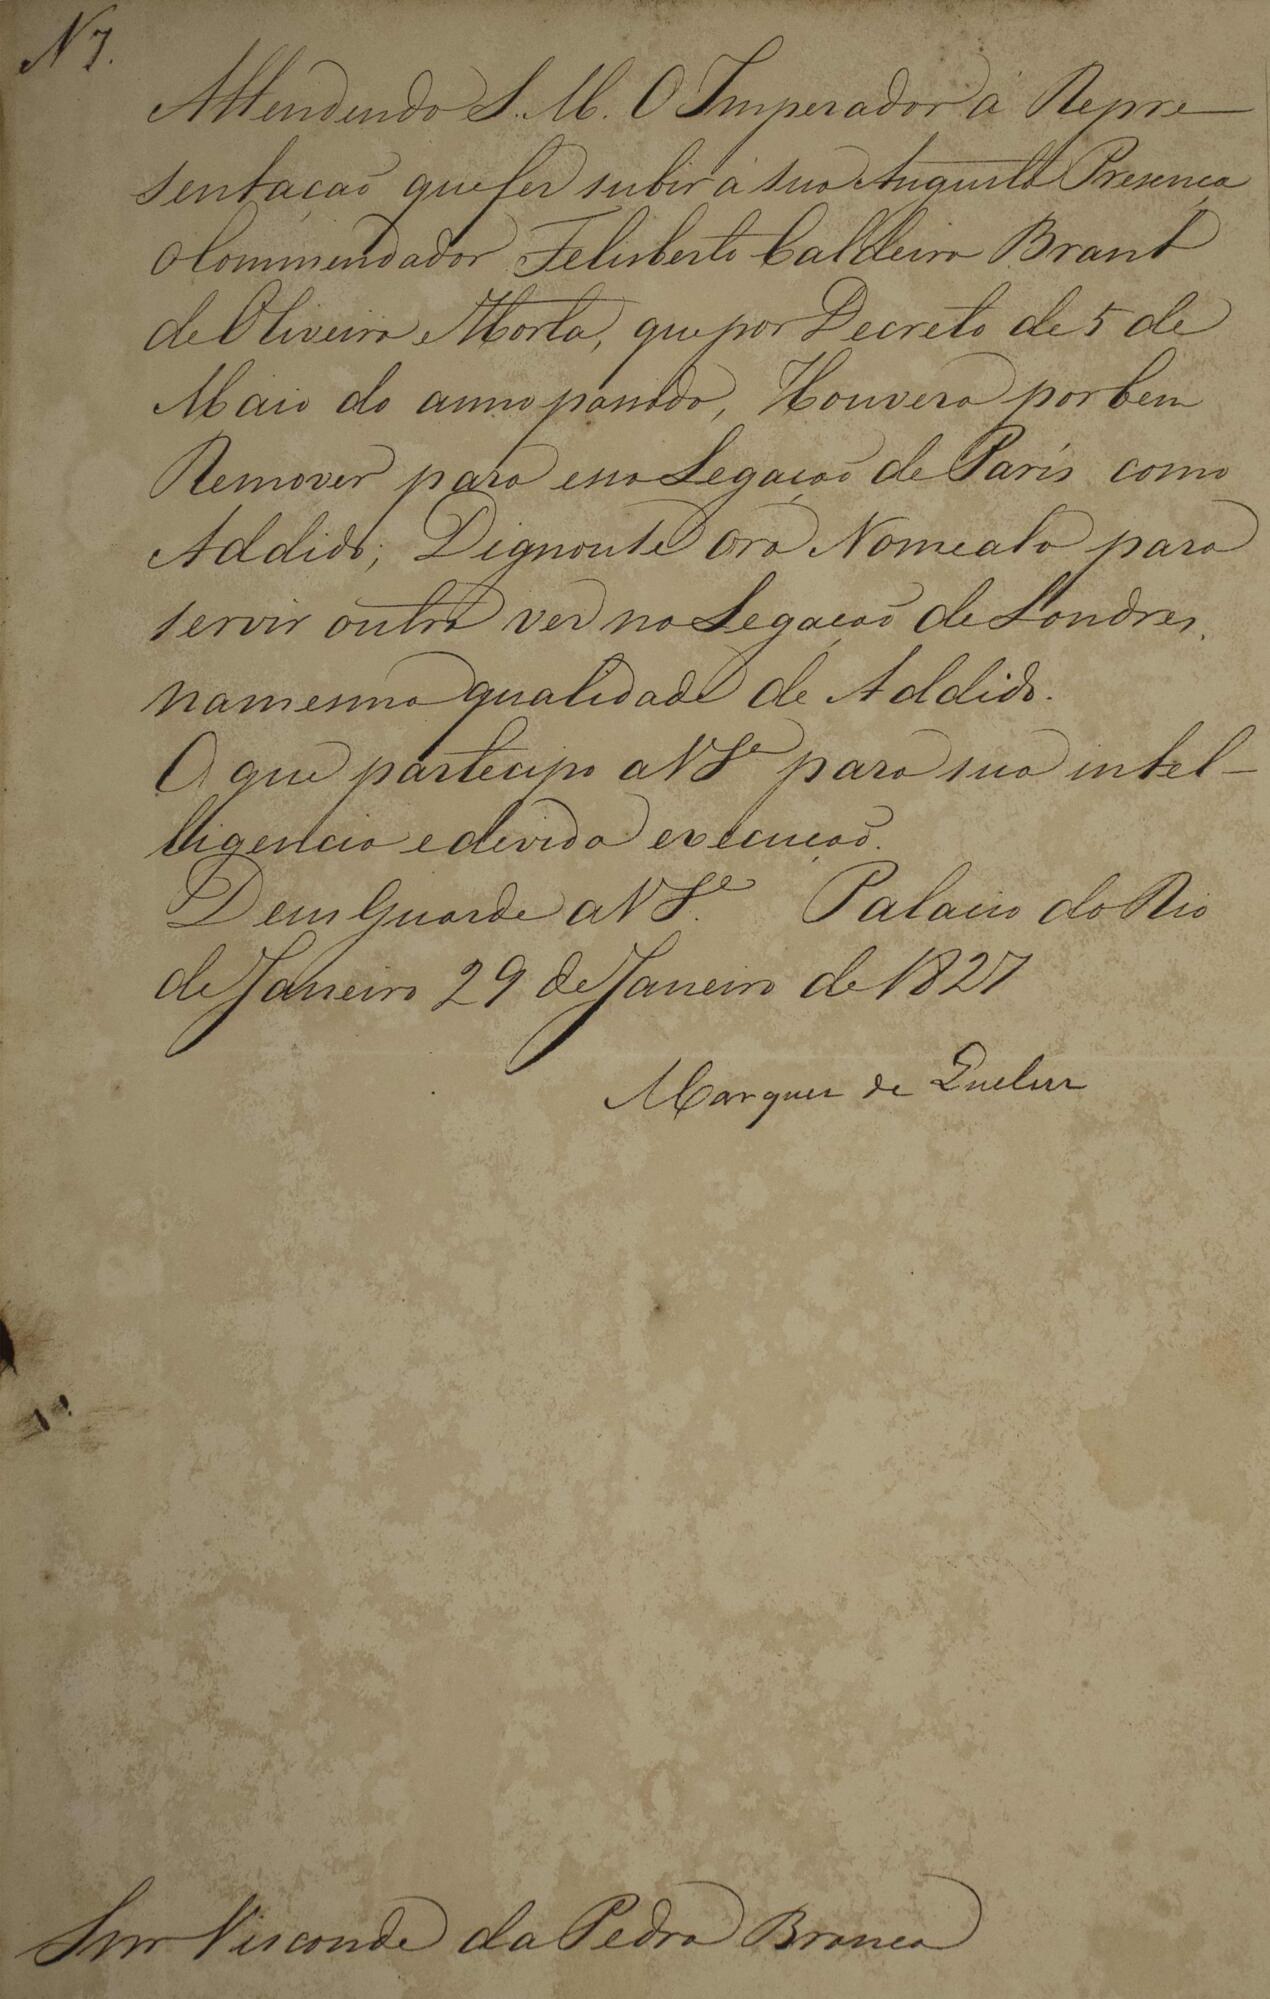 N 7.
Attendendo S. M. O Imperador á Repre-
sentaçaõ que fez subir á sua Augusta Presença
o Commendador Felisberto Caldeira Brant
de Oliveira e Horta, que por Decreto de 5 de
Maio do anno passado, Houvera por bem
Remover para essa Legaçaõ de París como
Addido; Dignouse ora Nomealo para
servir outra vez na Legaçaõ de Londres,
na mesma qualidade de Addido.
O que partecipo a V Sª para sua intel-
ligencia e devida execuçaõ.
Deus Guarde a V Sª. Palacio do Rio
de Janeiro 29 de Janeiro de 1827
Marquez de Queluz
Snr Visconde da Pedra Branca